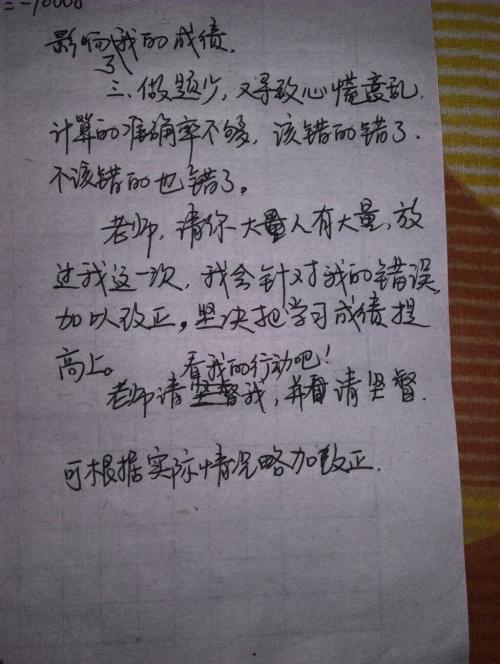 影响了我的成绩.
三、做题少,又导致心慌意乱,
计算的准确率不够,该错的错了,
不该错的也错了。
老师,请你大量人有大量,放
过我这一次,我会针对我的错误
加以改正。坚决把学习成绩提
高上。看我的行动吧!
老师请坚督我,并且请坚督.
可根据实际情况略加改正.